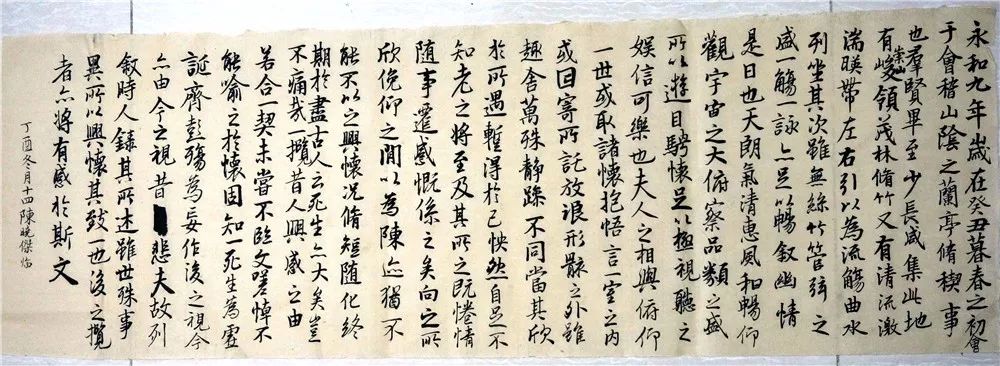 永和九年歲在癸丑暮春之初會
于會稽山陰之蘭亭脩稧事
也羣賢畢至少長咸集此地
有崇山峻領茂林脩竹又有清流激
湍暎帶左右引以為流觴曲水
列坐其次雖無絲竹管弦之
盛一觴一詠亦足以暢叙幽情
是日也天朗氣清惠風和暢仰
觀宇宙之大俯察品類之盛
所以遊目騁懷足以極視聽之
娛信可樂也夫人之相與俯仰
一世或取諸懷抱悟言一室之內
或因寄所託放浪形骸之外雖
趣舍萬殊静躁不同當其欣
於所遇暫得於己怏然自足不
知老之將至及其所之既惓情
随事遷感慨係之矣向之所
欣俛仰之閒以為陳迹猶不
能不以之興懷况脩短随化終
期於盡古人云死生亦大矣豈
不痛哉每攬昔人興感之由
若合一契未嘗不臨文嗟悼不
能喻之於懷固知一死生為虛
誕齊彭殤為妄作後之視今
亦由今之視昔悲夫故列
叙時人錄其所述雖世殊事
異所以興懷其致一也後之攬
者亦將有感於斯文
丁酉冬月十四陳晚傑臨